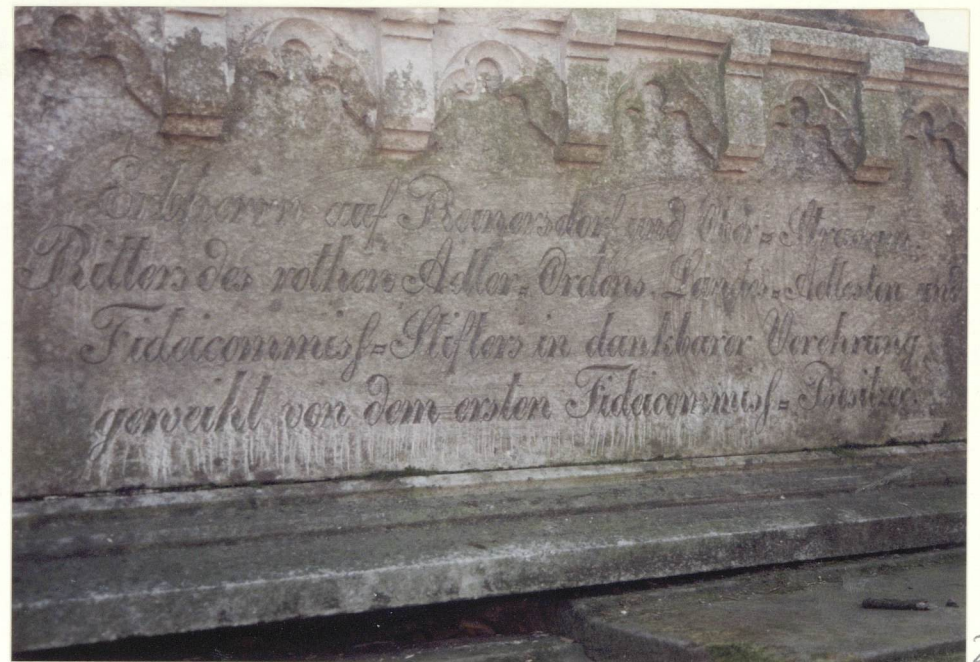 Erbherrn auf Banersdorf und Ober=
Ritters des rothen Adler=Ordens, Landes=Aeltesten und
Fideicommiss=Stifters in dankbarer Verehrung
geweiht von dem ersten Fideicommiss=Besitzer.